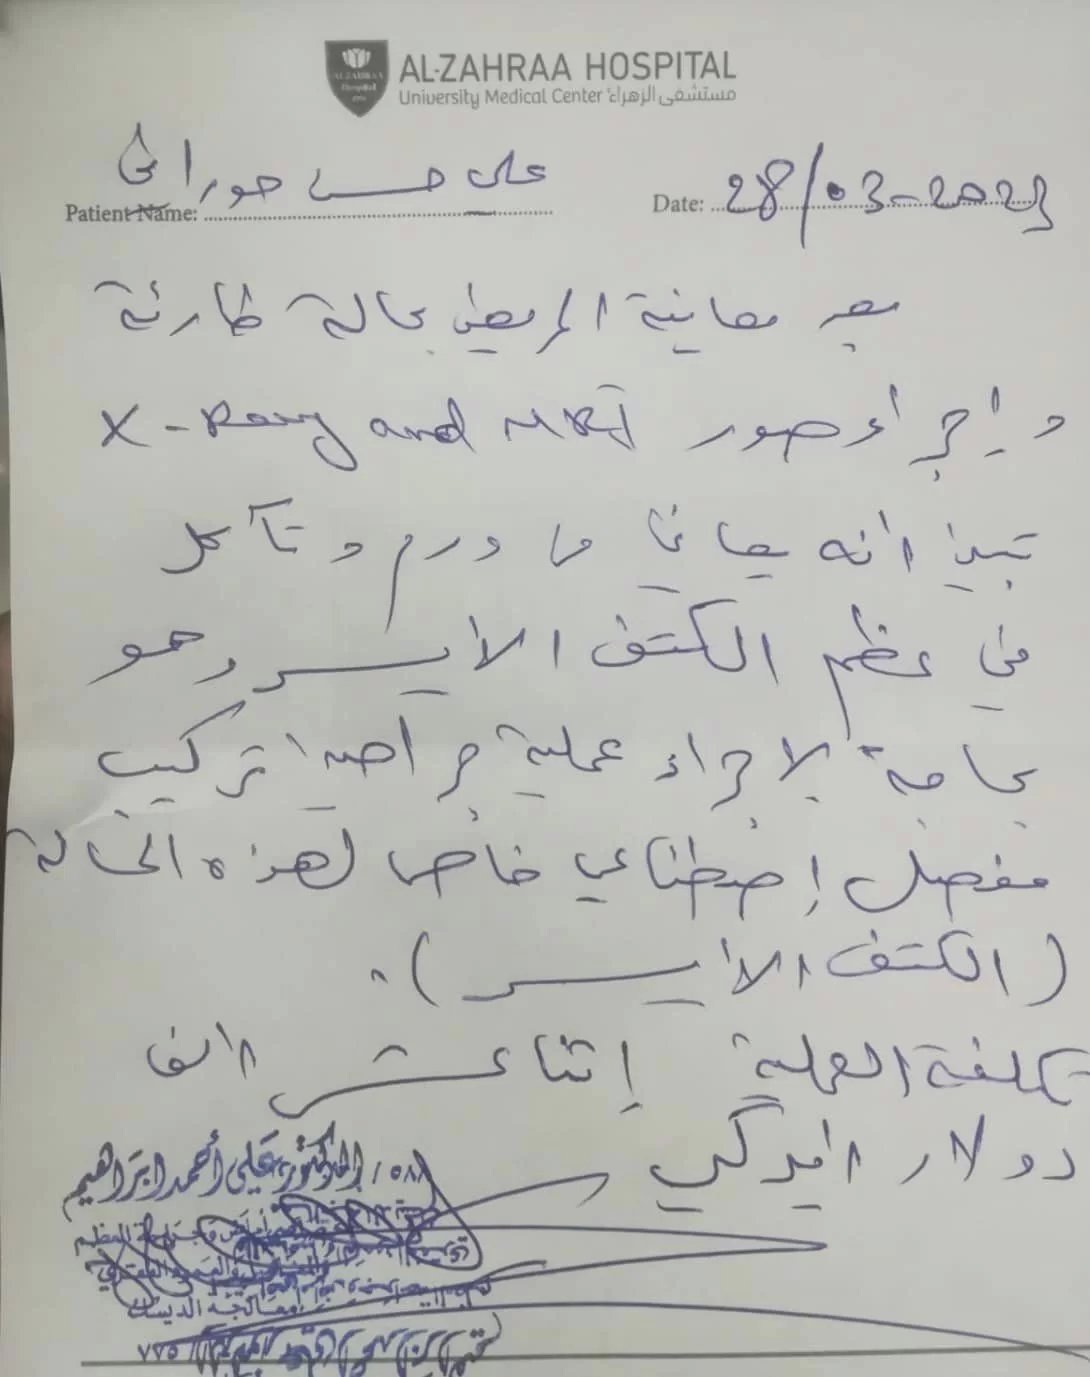 AL-ZAHRAA HOSPITAL
University Medical Center مستشفى الزهراء
AL ZAHRAA
Hospital
Patient Name: علي حسن حوراني
Date: 28/03-2023
بعد معاينة المريض بحالة طارئة
و إجراء صور X-Ray and MRI
تبين انه يعاني من ورم و تآكل
في عظم الكتف الايسر وهو
بحاجة لاجراء عملية جراحية تركيب
مفصل إصطناعي خاص لهذه الحالة
(الكتف الايسر).
تكلفة العملية إثنا عشر الف
دولار اميركي
الدكتور علي أحمد ابراهيم
معالجة الديسك